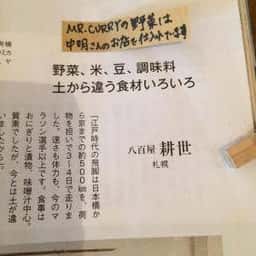 MR.CURRYの野菜は
中明さんのお店を仕入れてます
野菜、米、豆、調味料
土から違う食材いろいろ
八百屋 耕世
札幌
「江戸時代の飛脚は日本橋か
ら京までの約500kmを、荷
物を担いで3〜4日で走りま
した。速さも体力も、今のマ
ラソン選手以上です。食事は
おにぎりと漬物、味噌汁中心。
質素でしたが、今とは土が違
いましたから」。